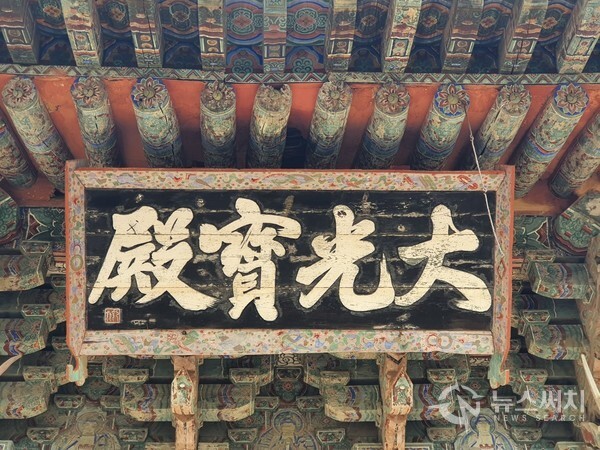 大光寶殿
뉴스써치
NEWS SEARCH